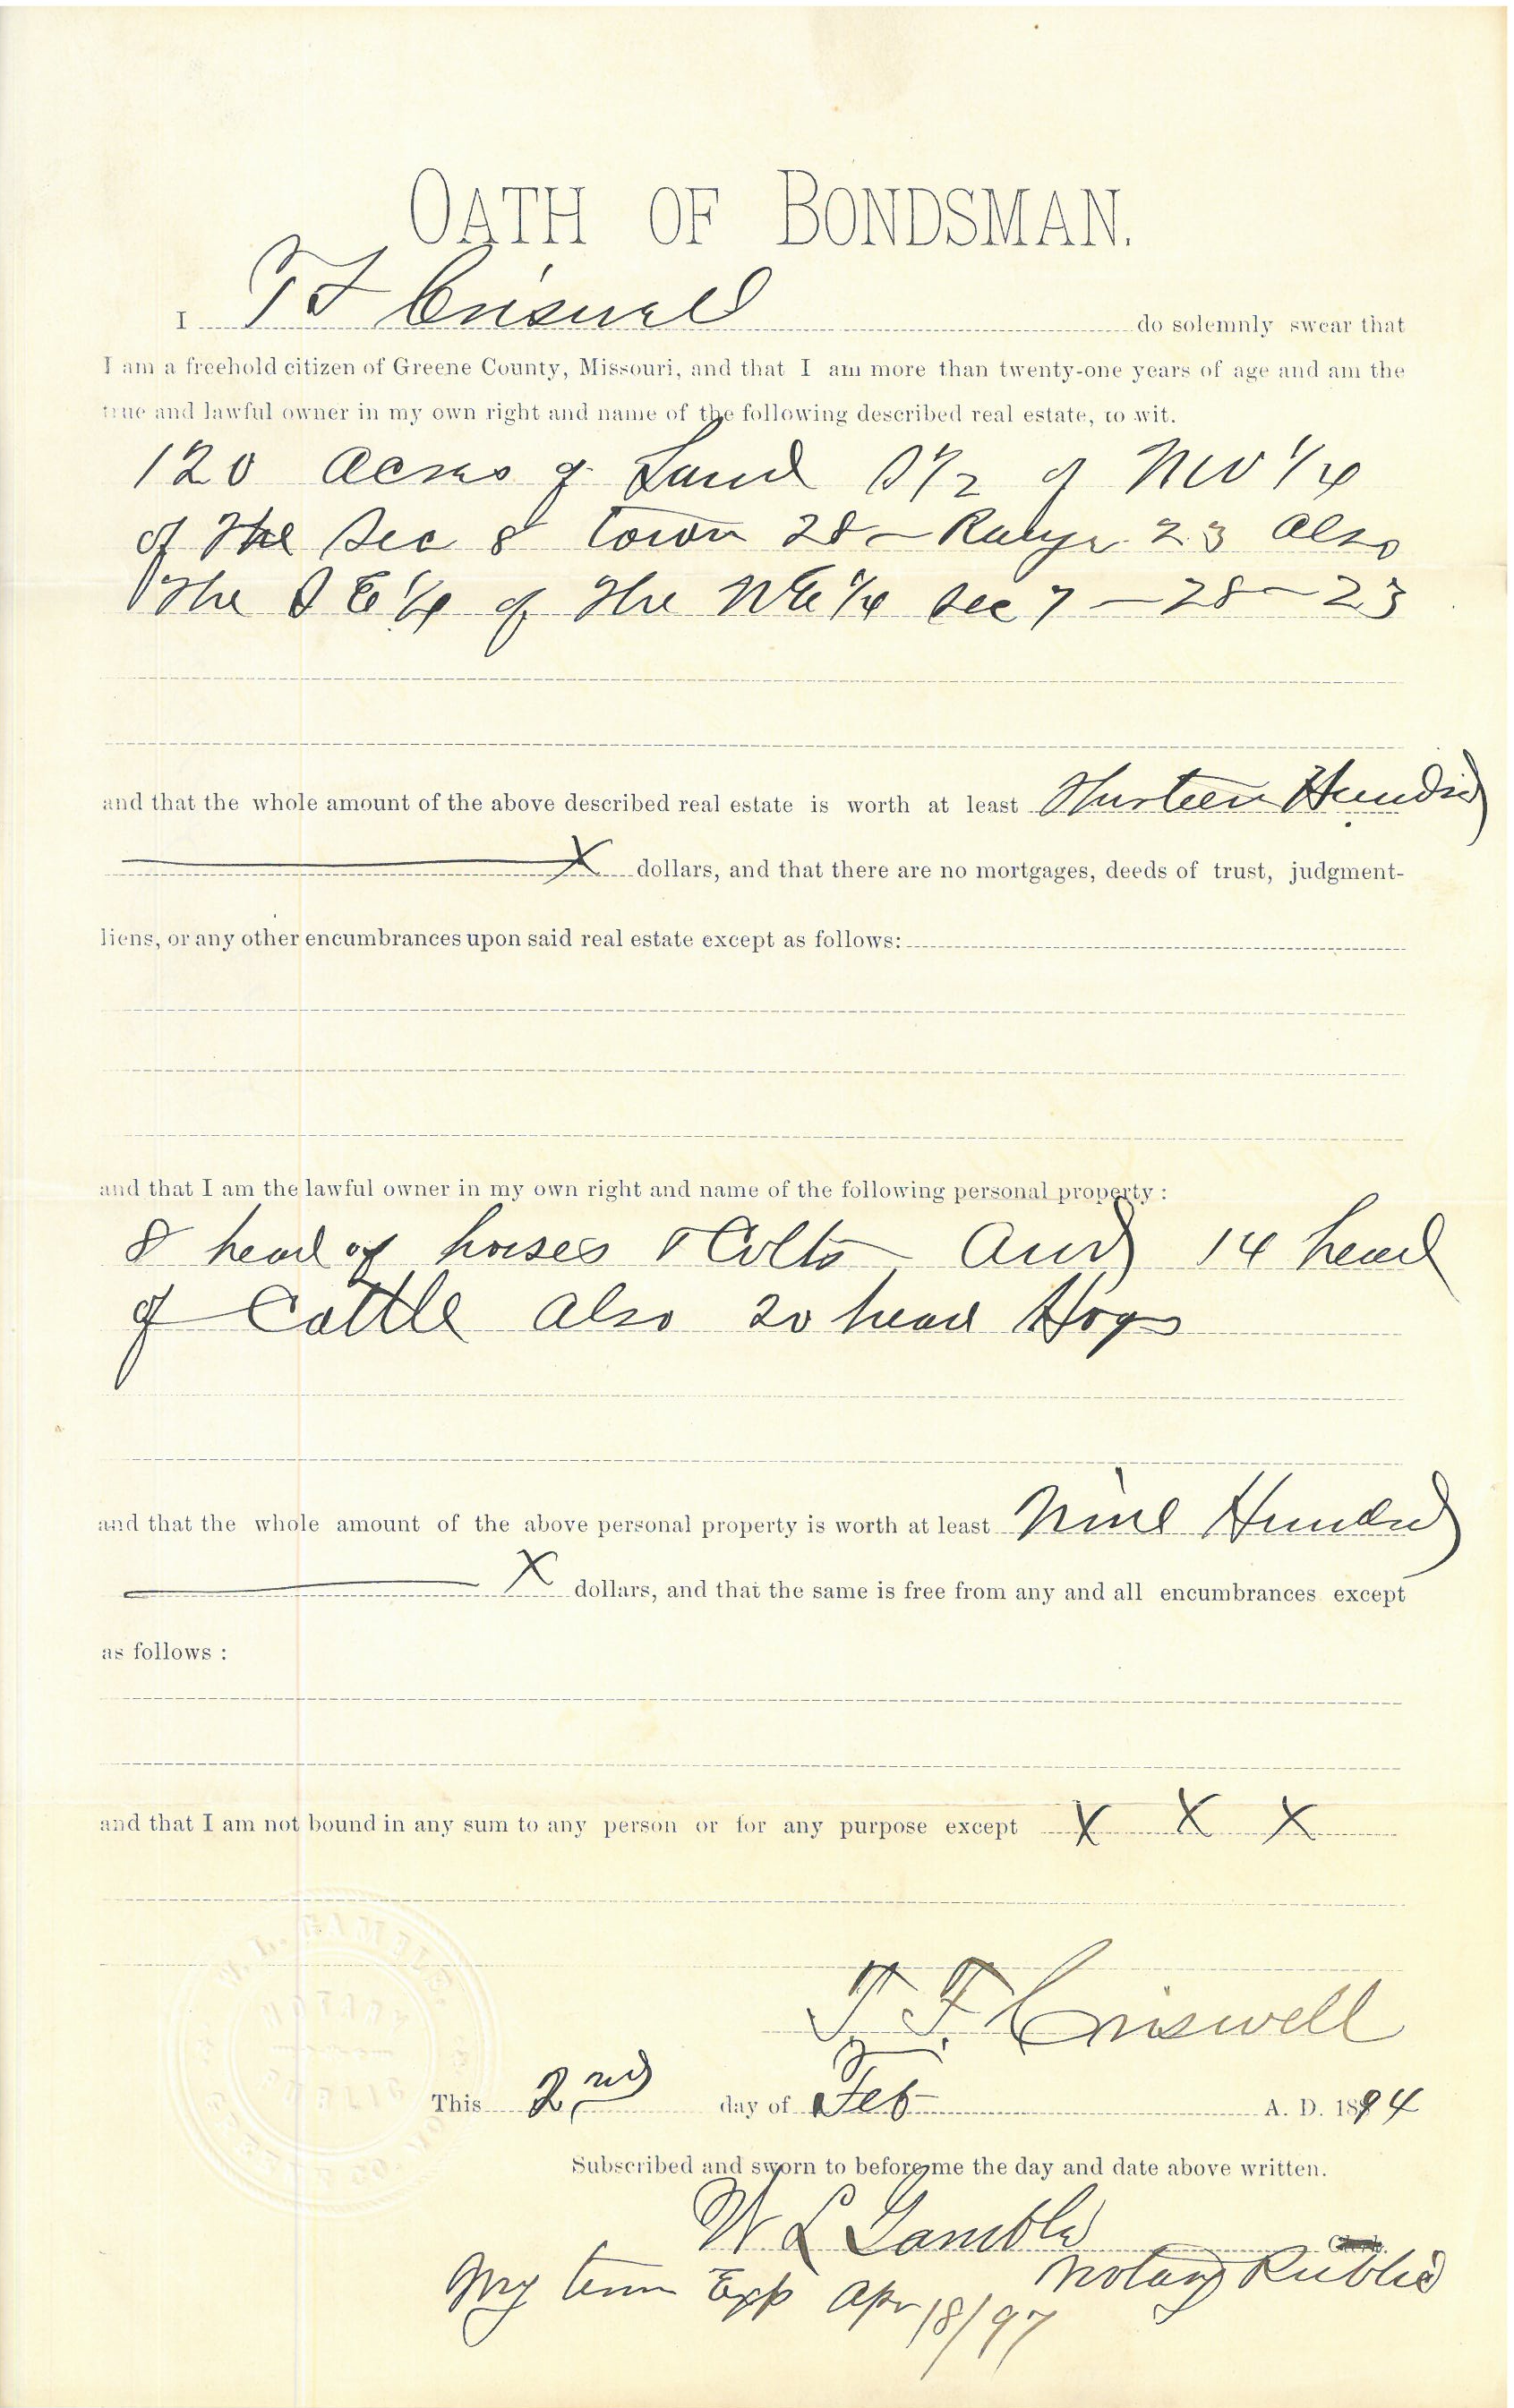 OATH OF BONDSMAN.
I T F Criswell do solemnly swear that
I am a freehold citizen of Greene County, Missouri, and that I am more than twenty-one years of age and am the
true and lawful owner in my own right and name of the following described real estate, to wit.
120 Acres of Land S 1/2 of NW 1/4
of the Sec 8 Town 28 - Range 23 Also
The S E 1/4 of the NE 1/4 Sec 7 - 28 - 23
and that the whole amount of the above described real estate is worth at least Thirteen Hundred
X dollars, and that there are no mortgages, deeds of trust, judgment-
liens, or any other encumbrances upon said real estate except as follows:
and that I am the lawful owner in my own right and name of the following personal property :
8 head of horses & Colts And 14 head
of Cattle also 20 head Hogs
and that the whole amount of the above personal property is worth at least Nine Hundred
X dollars, and that the same is free from any and all encumbrances except
as follows :
and that I am not bound in any sum to any person or for any purpose except X X X
T. F. Criswell
This 2nd day of Feb A. D. 1894
Subscribed and sworn to before me the day and date above written.
W L Gamble Clerk.
Notary Public
My term Exp Apr 18/97